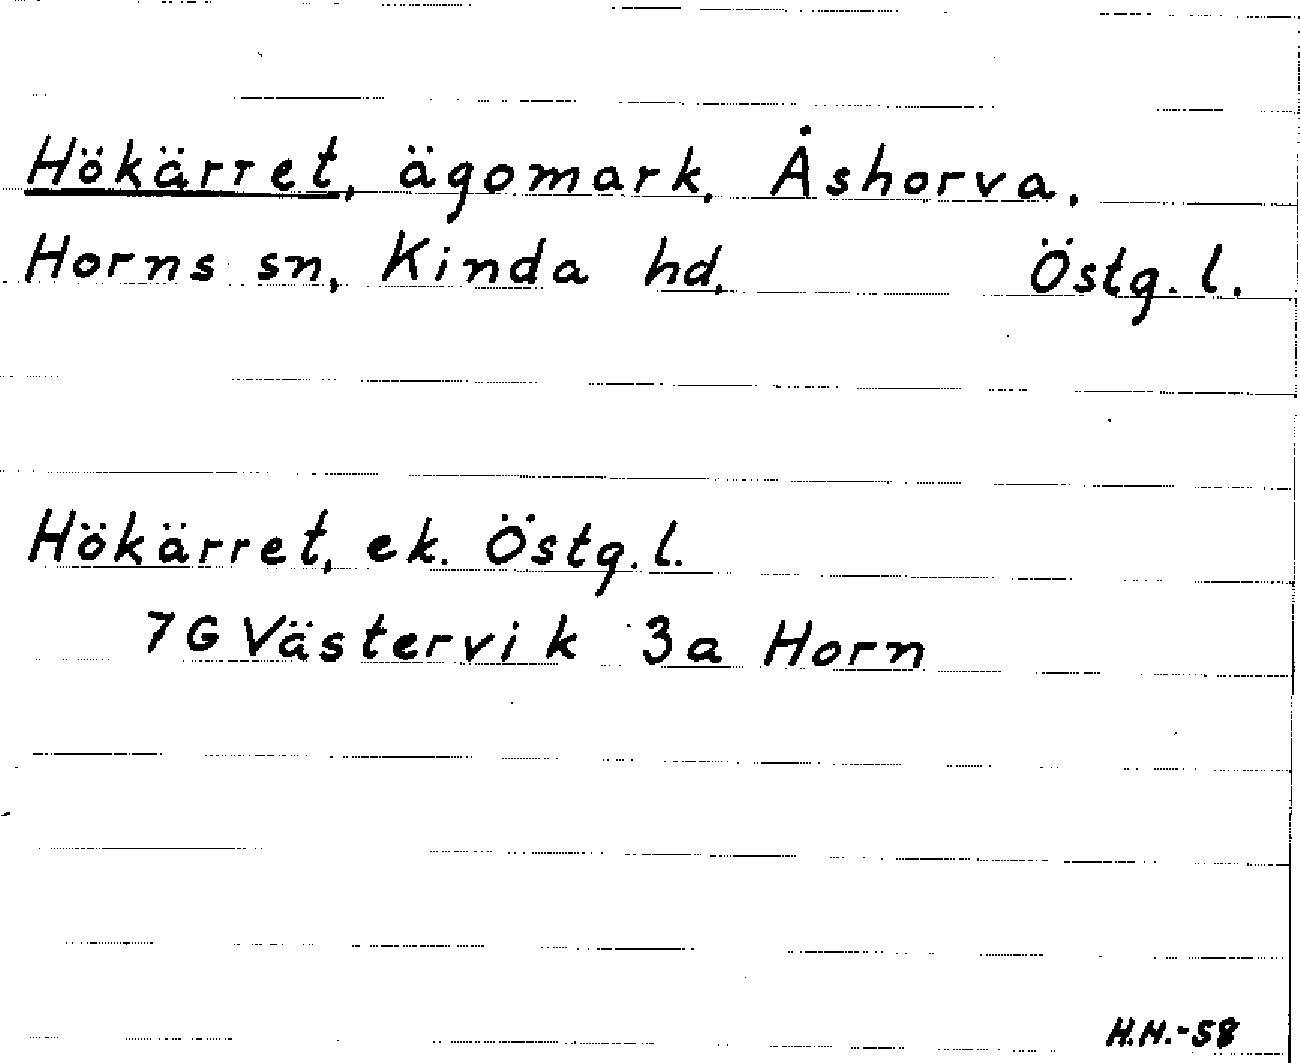 Hökärret, ägomark, Åshorva.
Horns sn, Kinda hd, Östg. l.
Hökärret, ek. Östg. l.
7 G Västervik 3a Horn
H.H.-58